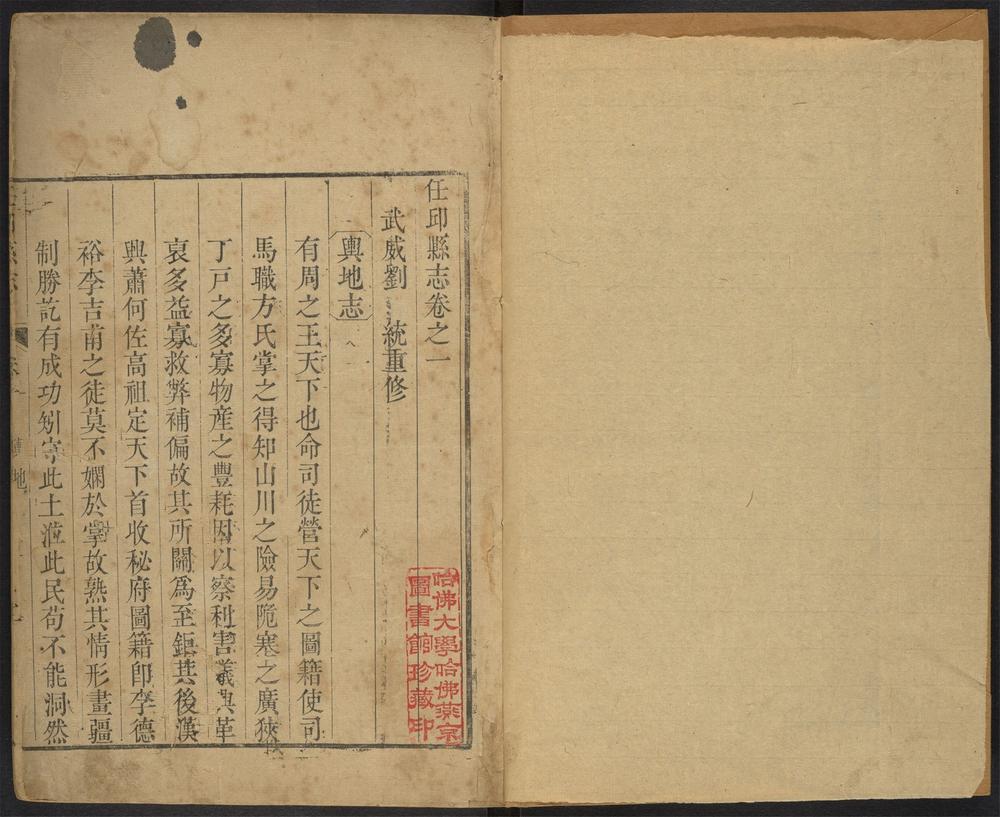 任邱縣志卷之一
武威劉統重修
輿地志
有周之王天下也命司徒營天下之圖籍使司
馬職方氏掌之得知山川之險易阨塞之廣狹
丁戸之多寡物産之豐耗因以察利害義興革
裒多益寡救弊補偏故其所關爲至鉅其後漢
興蕭何佐高祖定天下首收秘府圖籍卽李德
裕李吉甫之徒莫不嫻於掌故熟其情形畫疆
制勝訖有成功矧守此土涖此民苟不能洞然
地
哈佛大學哈佛燕京
圖書館珍藏印